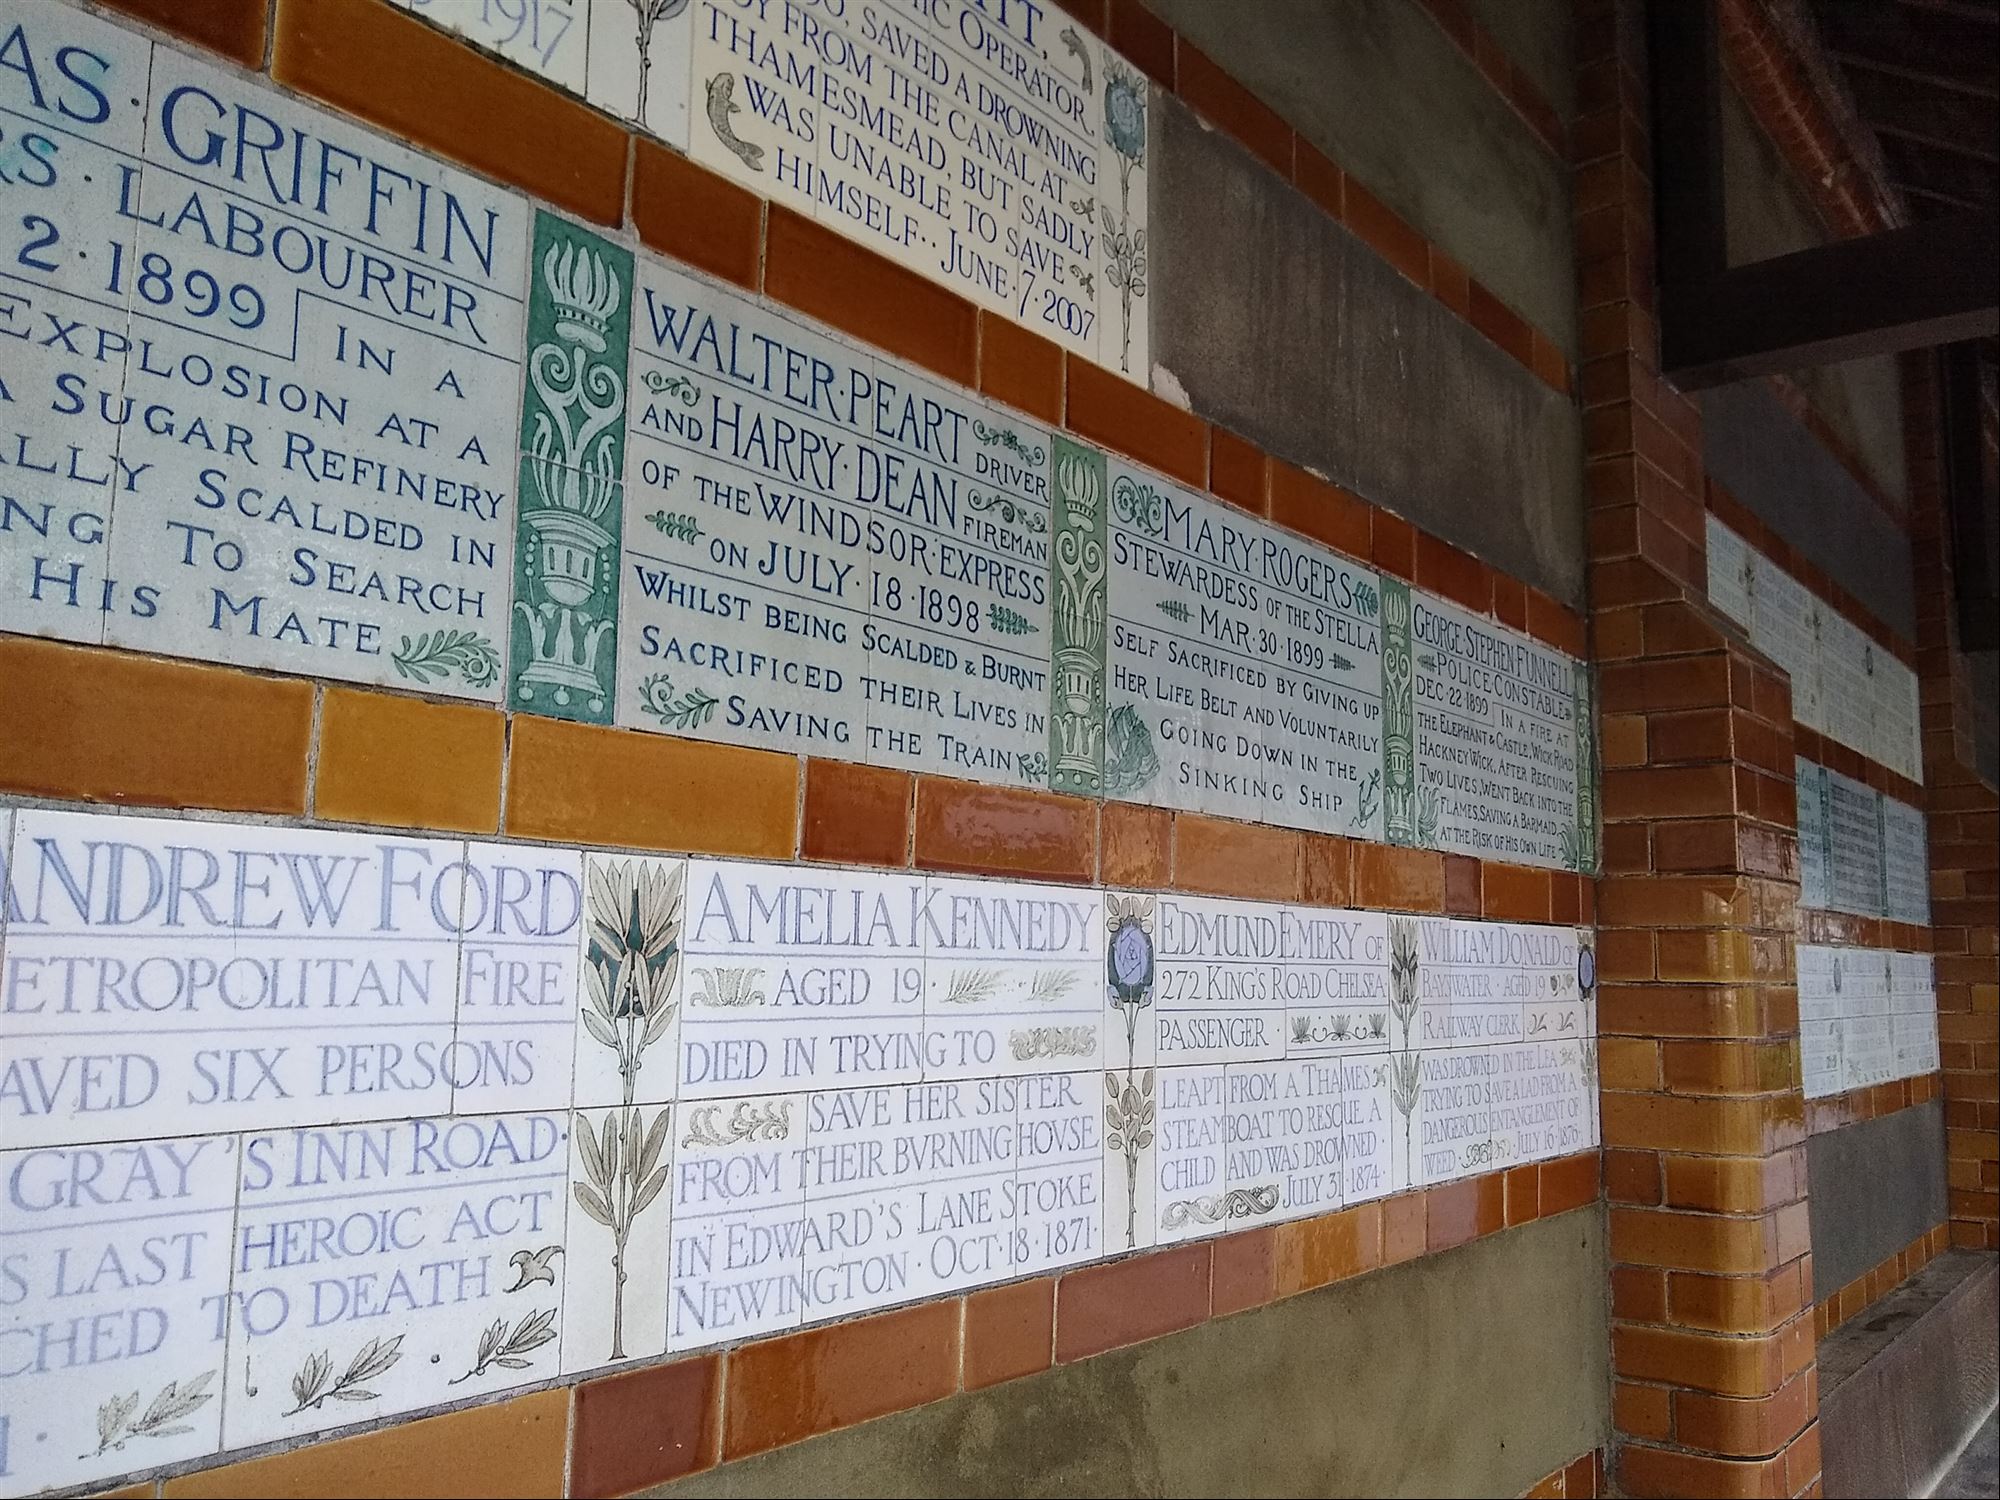 1917
OPERATOR,
SAVED A DROWNING
FROM THE CANAL AT
THAMESMEAD, BUT SADLY
WAS UNABLE TO SAVE
HIMSELF·· JUNE·7·2007
AS·GRIFFIN
RS·LABOURER
2·1899 IN A
EXPLOSION AT A
A SUGAR REFINERY
ALLY SCALDED IN
NG TO SEARCH
HIS MATE
WALTER·PEART
DRIVER
AND HARRY·DEAN
FIREMAN
OF THE WINDSOR·EXPRESS
ON JULY·18·1898
WHILST BEING SCALDED & BURNT
SACRIFICED THEIR LIVES IN
SAVING THE TRAIN
MARY·ROGERS
STEWARDESS OF THE STELLA
MAR·30·1899
SELF SACRIFICED BY GIVING UP
HER LIFE BELT AND VOLUNTARILY
GOING DOWN IN THE
SINKING SHIP
GEORGE·STEPHEN·FUNNELL
POLICE·CONSTABLE
DEC·22·1899 IN A FIRE AT
THE ELEPHANT & CASTLE, WICK ROAD
HACKNEY WICK, AFTER RESCUING
TWO LIVES, WENT BACK INTO THE
FLAMES, SAVING A BARMAID,
AT THE RISK OF HIS OWN LIFE
ANDREW FORD
ETROPOLITAN FIRE
AVED SIX PERSONS
GRAY'S INN ROAD·
S LAST HEROIC ACT
CHED TO DEATH
AMELIA KENNEDY
AGED 19·
DIED IN TRYING TO
SAVE HER SISTER
FROM THEIR BVRNING HOVSE
IN EDWARD'S LANE STOKE
NEWINGTON·OCT·18·1871·
EDMUND EMERY OF
272 KING'S ROAD CHELSEA
PASSENGER·
LEAPT FROM A THAMES
STEAMBOAT TO RESCUE A
CHILD AND WAS DROWNED·
JULY 31·1874·
WILLIAM DONALD OF
BAYSWATER·AGED 19
RAILWAY CLERK
WAS DROWNED IN THE LEA
TRYING TO SAVE A LAD FROM A
DANGEROUS ENTANGLEMENT OF
WEED JULY 16·1876·